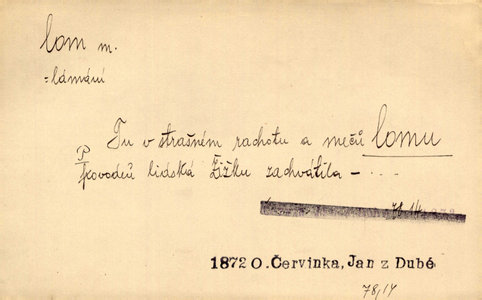 lom m.
= lámání
Tu v strašném rachotu a mečů lomu
P
povodeň lidská Žižku zachvátila – . . .
1872 O. Červinka, Jan z Dubé
78,14